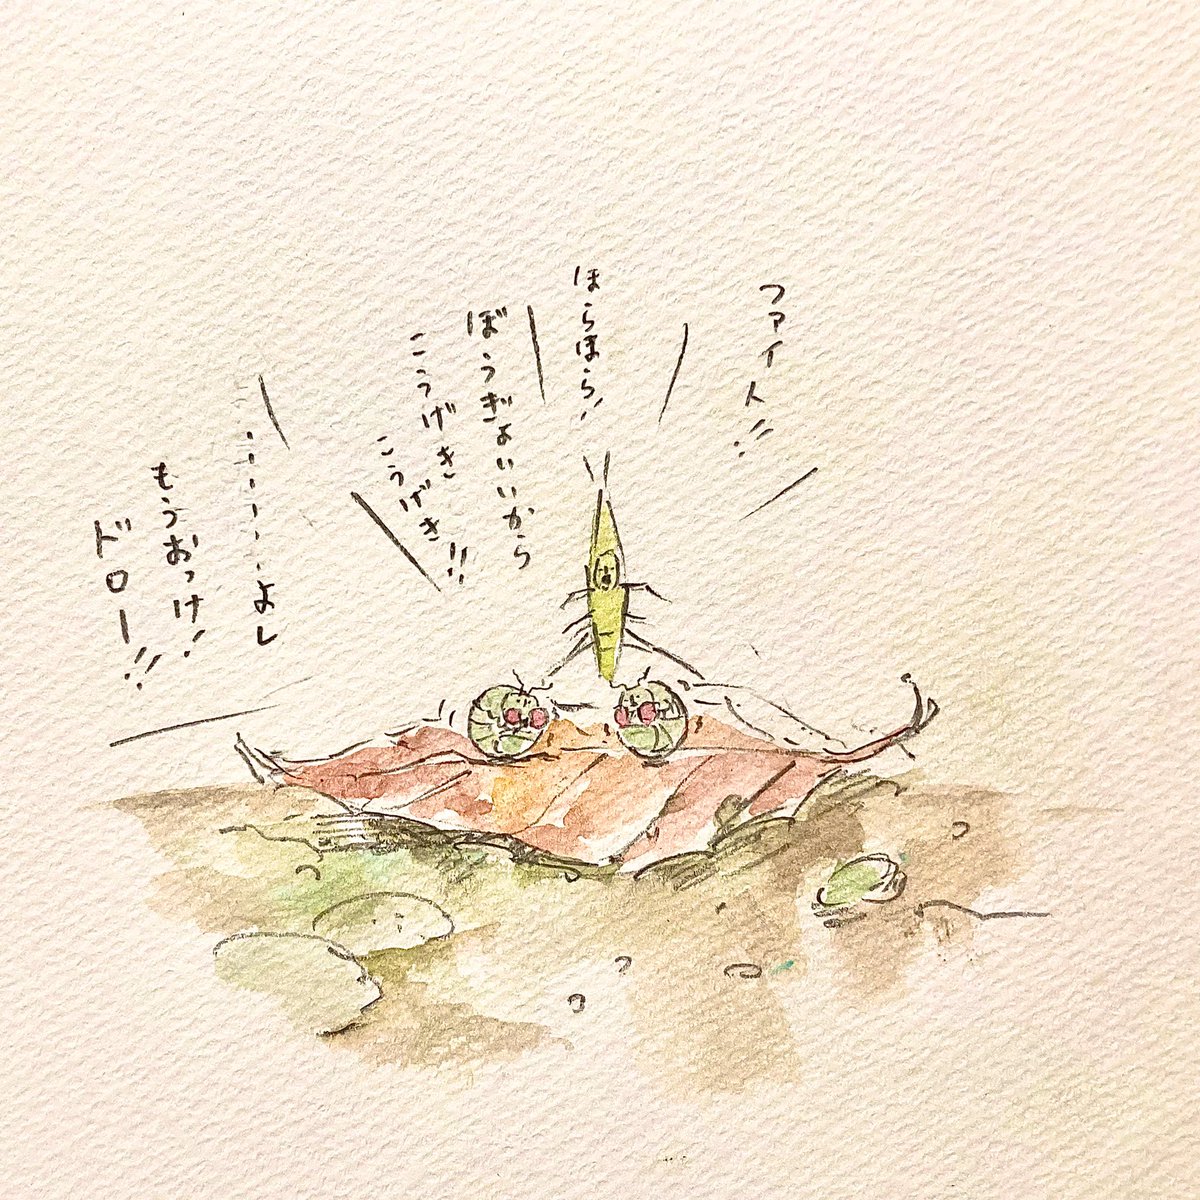 ファイト!!
ほらほら!
ぼうぎょいいから
こうげき
こうげき!!
………よし
もうおっけ!
ドロー!!